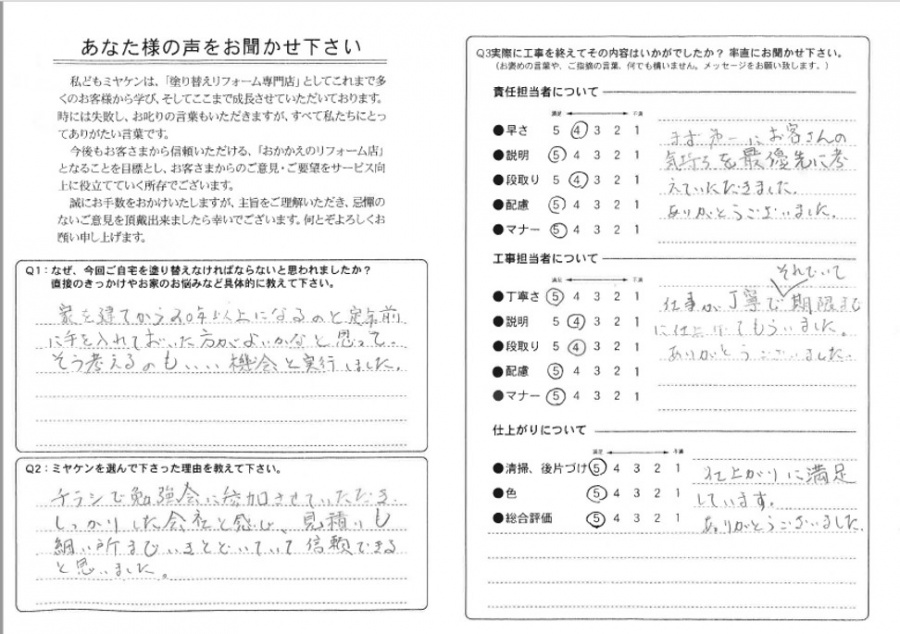 あなた様の声をお聞かせ下さい
私どもミヤケンは、「塗り替えリフォーム専門店」としてこれまで多
くのお客様から学び、そしてここまで成長させていただいております。
時には失敗し、お叱りの言葉もいただきますが、すべて私たちにとっ
てありがたい言葉です。
今後もお客さまから信頼いただける、「おかかえのリフォーム店」
となることを目標とし、お客さまからのご意見・ご要望をサービス向
上に役立てていく所存でございます。
誠にお手数をおかけいたしますが、主旨をご理解いただき、忌憚の
ないご意見を頂戴出来ましたら幸いでございます。何とぞよろしくお
願い申し上げます。
Q1：なぜ、今回ご自宅を塗り替えなければならないと思われましたか？
直接のきっかけやお家のお悩みなど具体的に教えて下さい。
家を建てから20年以上になるのと定年前
に手を入れておいた方がよいかなと思って、
そう考えるのもいい機会と実行しました。
Q2：ミヤケンを選んで下さった理由を教えて下さい。
チラシで勉強会に参加させていただき、
しっかりした会社と感じ、見積りも
細い所までいきとどいていて信頼できる
と思いました。
Q3実際に工事を終えてその内容はいかがでしたか？ 率直にお聞かせ下さい。
（お褒めの言葉や、ご指摘の言葉、何でも構いません。メッセージをお願い致します。）
責任担当者について
満足 不満
●早さ 5 4 3 2 1
●説明 5 4 3 2 1
●段取り 5 4 3 2 1
●配慮 5 4 3 2 1
●マナー 5 4 3 2 1
まず第一にお客さんの
気持ちを最優先に考
えていただきました。
ありがとうございました。
工事担当者について
満足 不満
●丁寧さ 5 4 3 2 1
●説明 5 4 3 2 1
●段取り 5 4 3 2 1
●配慮 5 4 3 2 1
●マナー 5 4 3 2 1
それでいて
仕事が丁寧で期限まで
に仕上げてもらいました。
ありがとうございました。
仕上がりについて
満足 不満
●清掃、後片づけ 5 4 3 2 1
●色 5 4 3 2 1
●総合評価 5 4 3 2 1
仕上がりに満足
しています。
ありがとうございました。